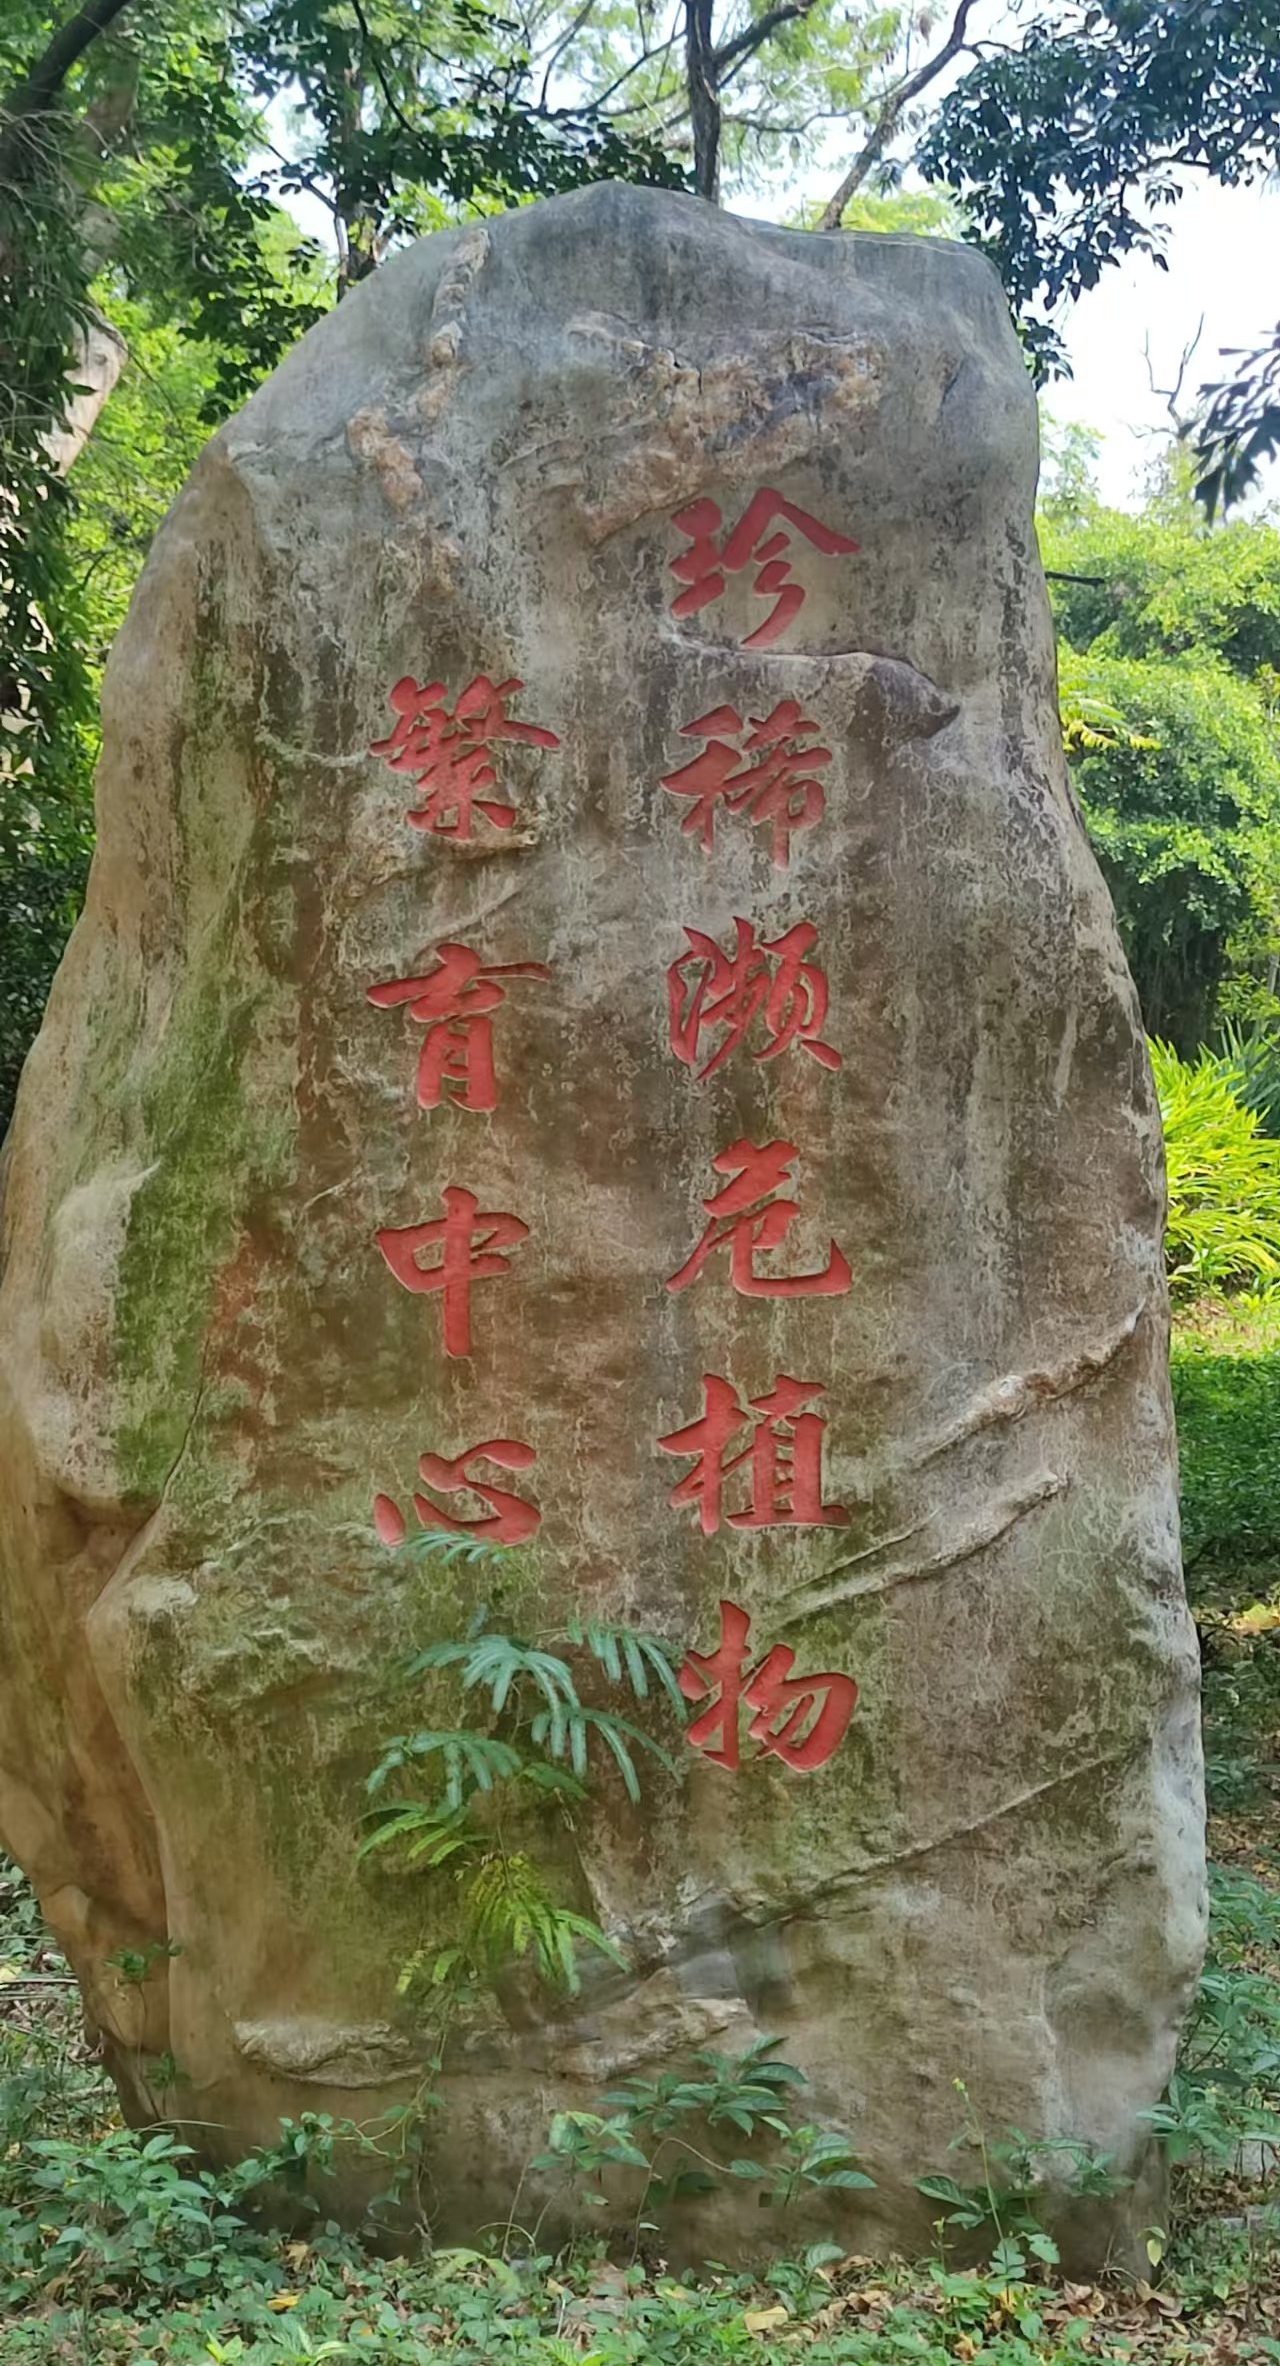 珍稀濒危植物
繁育中心